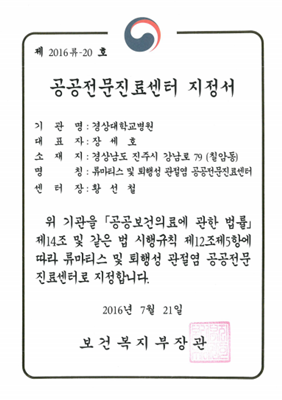 제 2016류-20 호
공공전문진료센터 지정서
기 관 명 : 경상대학교병원
대 표 자 : 장 세 호
소 재 지 : 경상남도 진주시 강남로 79 (칠암동)
명 칭 : 류마티스 및 퇴행성 관절염 공공전문진료센터
센 터 장 : 황 선 철
위 기관을 「공공보건의료에 관한 법률」
제14조 및 같은 법 시행규칙 제12조제5항에
따라 류마티스 및 퇴행성 관절염 공공전문
진료센터로 지정합니다.
2016년 7월 21일
보건복지부장관